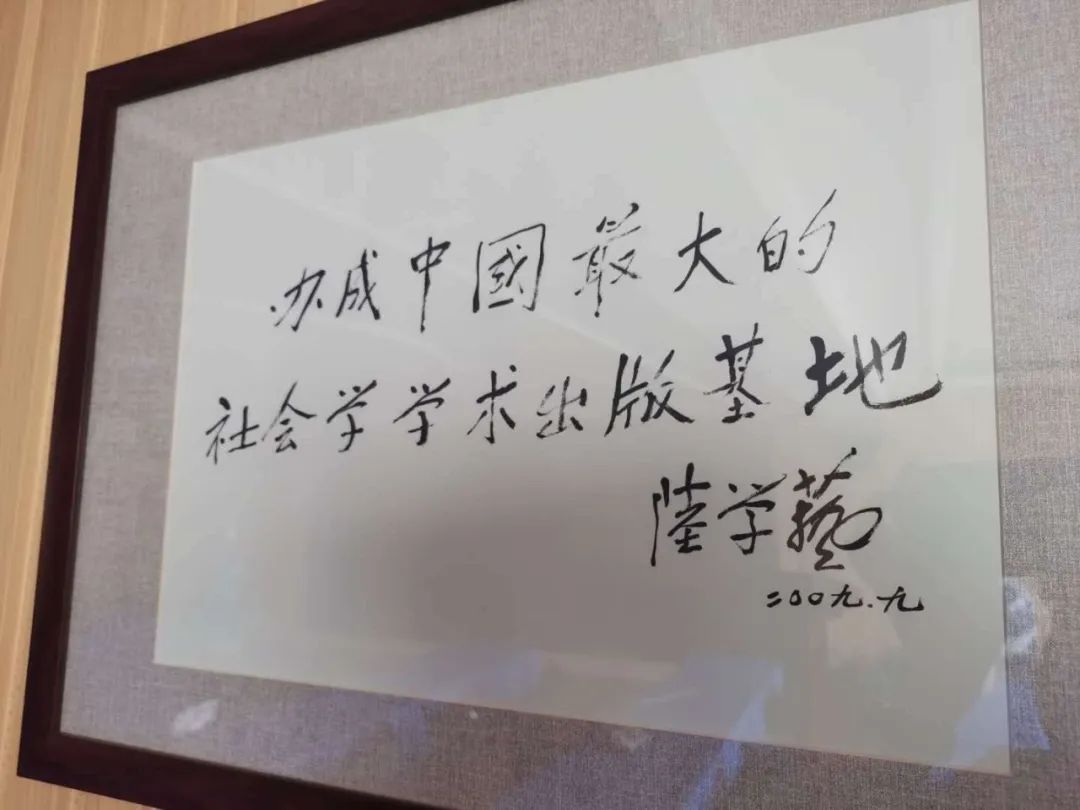 办成中國最大的
社会学学术出版基地
陸学藝
二〇〇九.九